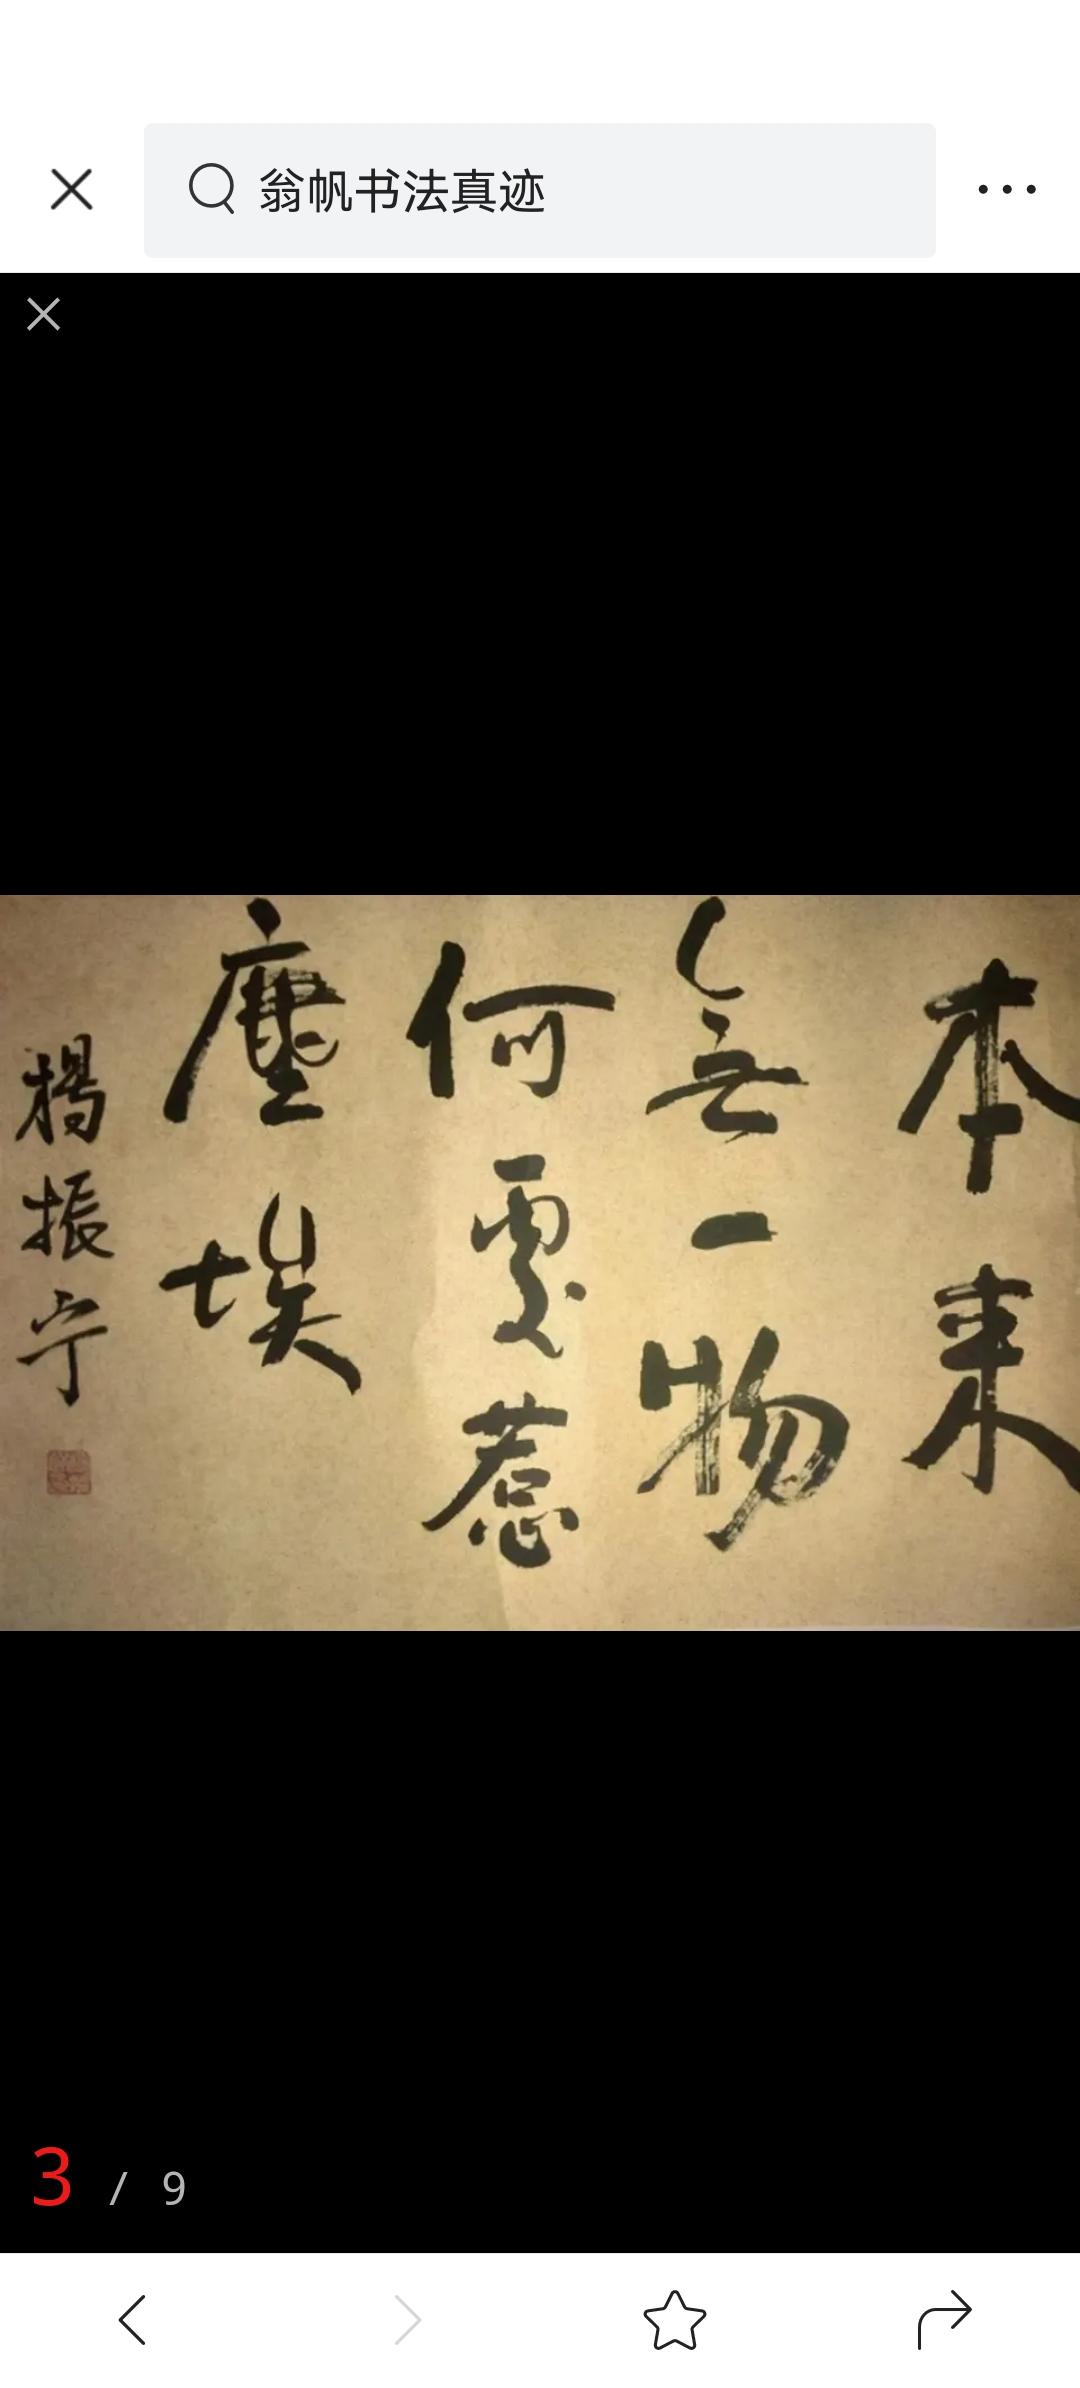 翁帆书法真迹
本来
無一物
何處惹
塵埃
楊振宁
3 / 9